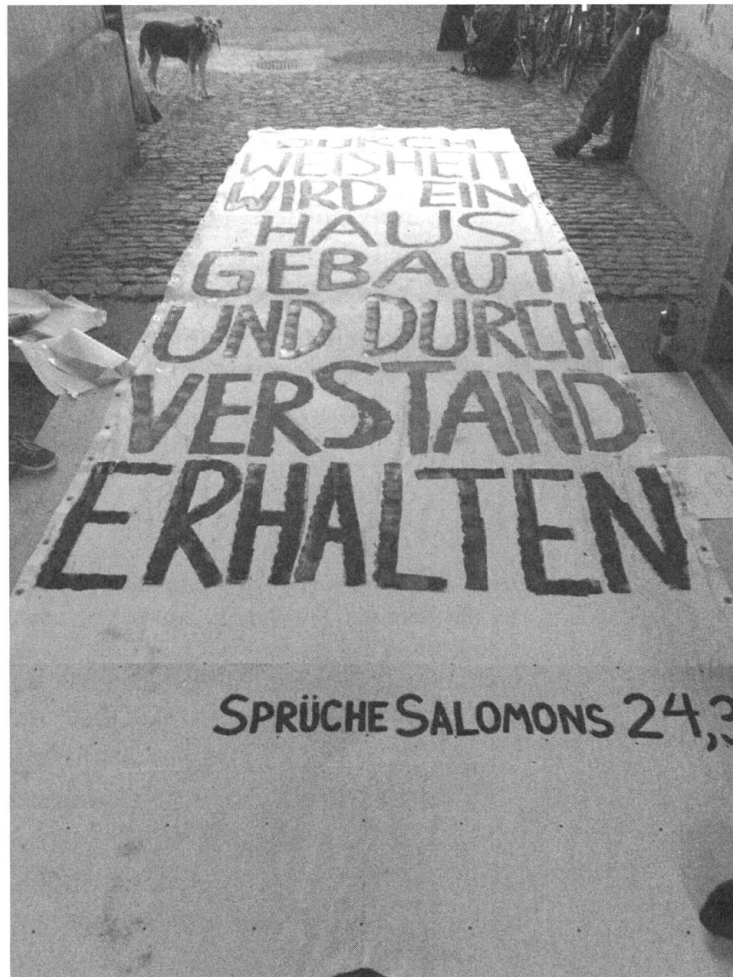 DURCH
WEISHEIT
WIRD EIN
HAUS
GEBAUT
UND DURCH
VERSTAND
ERHALTEN
SPRÜCHE SALOMONS 24,3